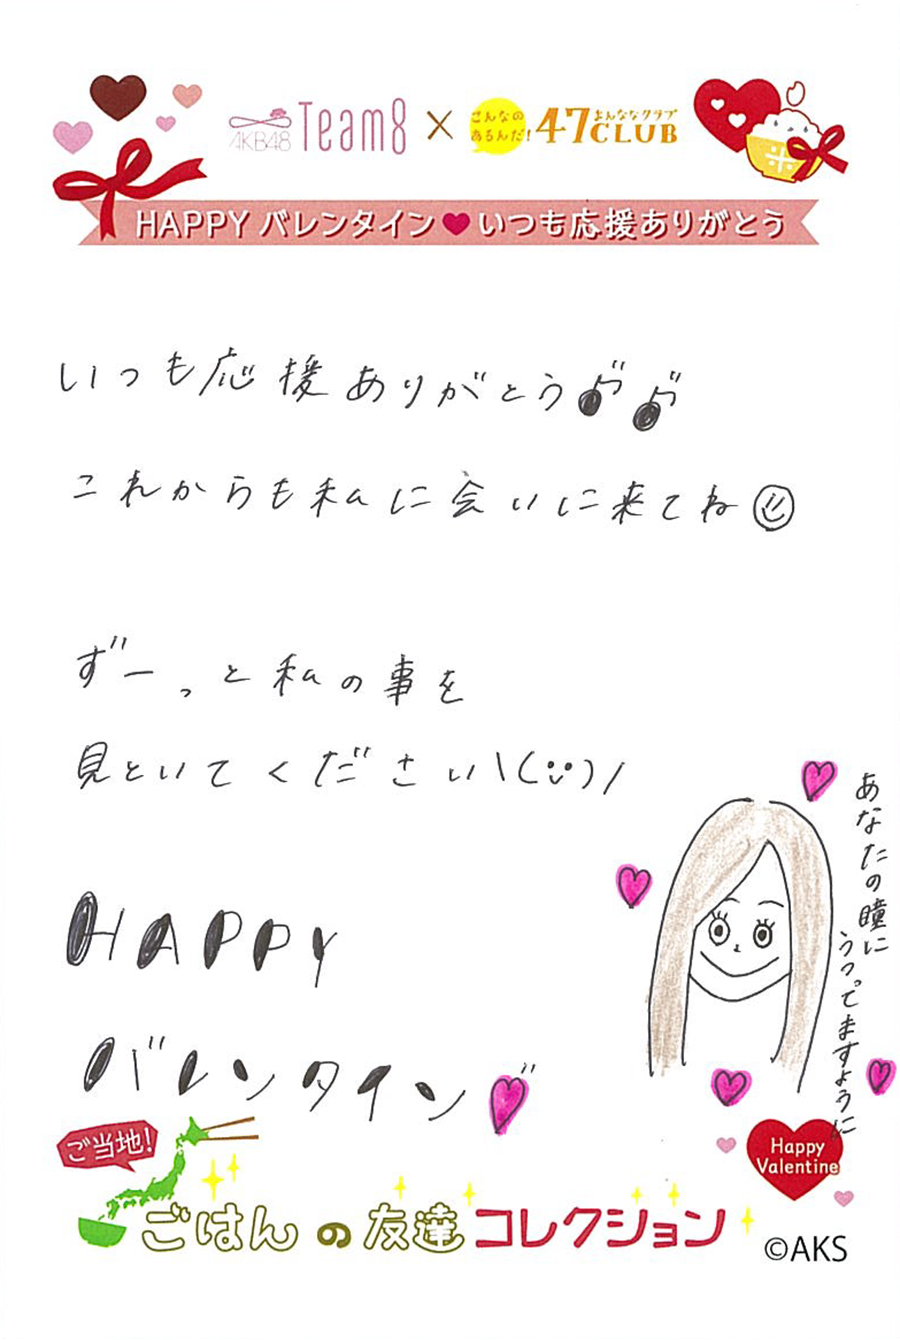 AKB48 Team8 × こんなのあるんだ! 47CLUB よんななクラブ
HAPPY バレンタイン♥いつも応援ありがとう
いつも応援ありがとう♪♪
これからも私に会いに来てね☺
ずーっと私の事を
見といてください\(¨̮)/
あなたの瞳に
うつってますように
HAPPY
バレンタイン
ご当地!
Happy
Valentine
ごはんの友達コレクション
©AKS